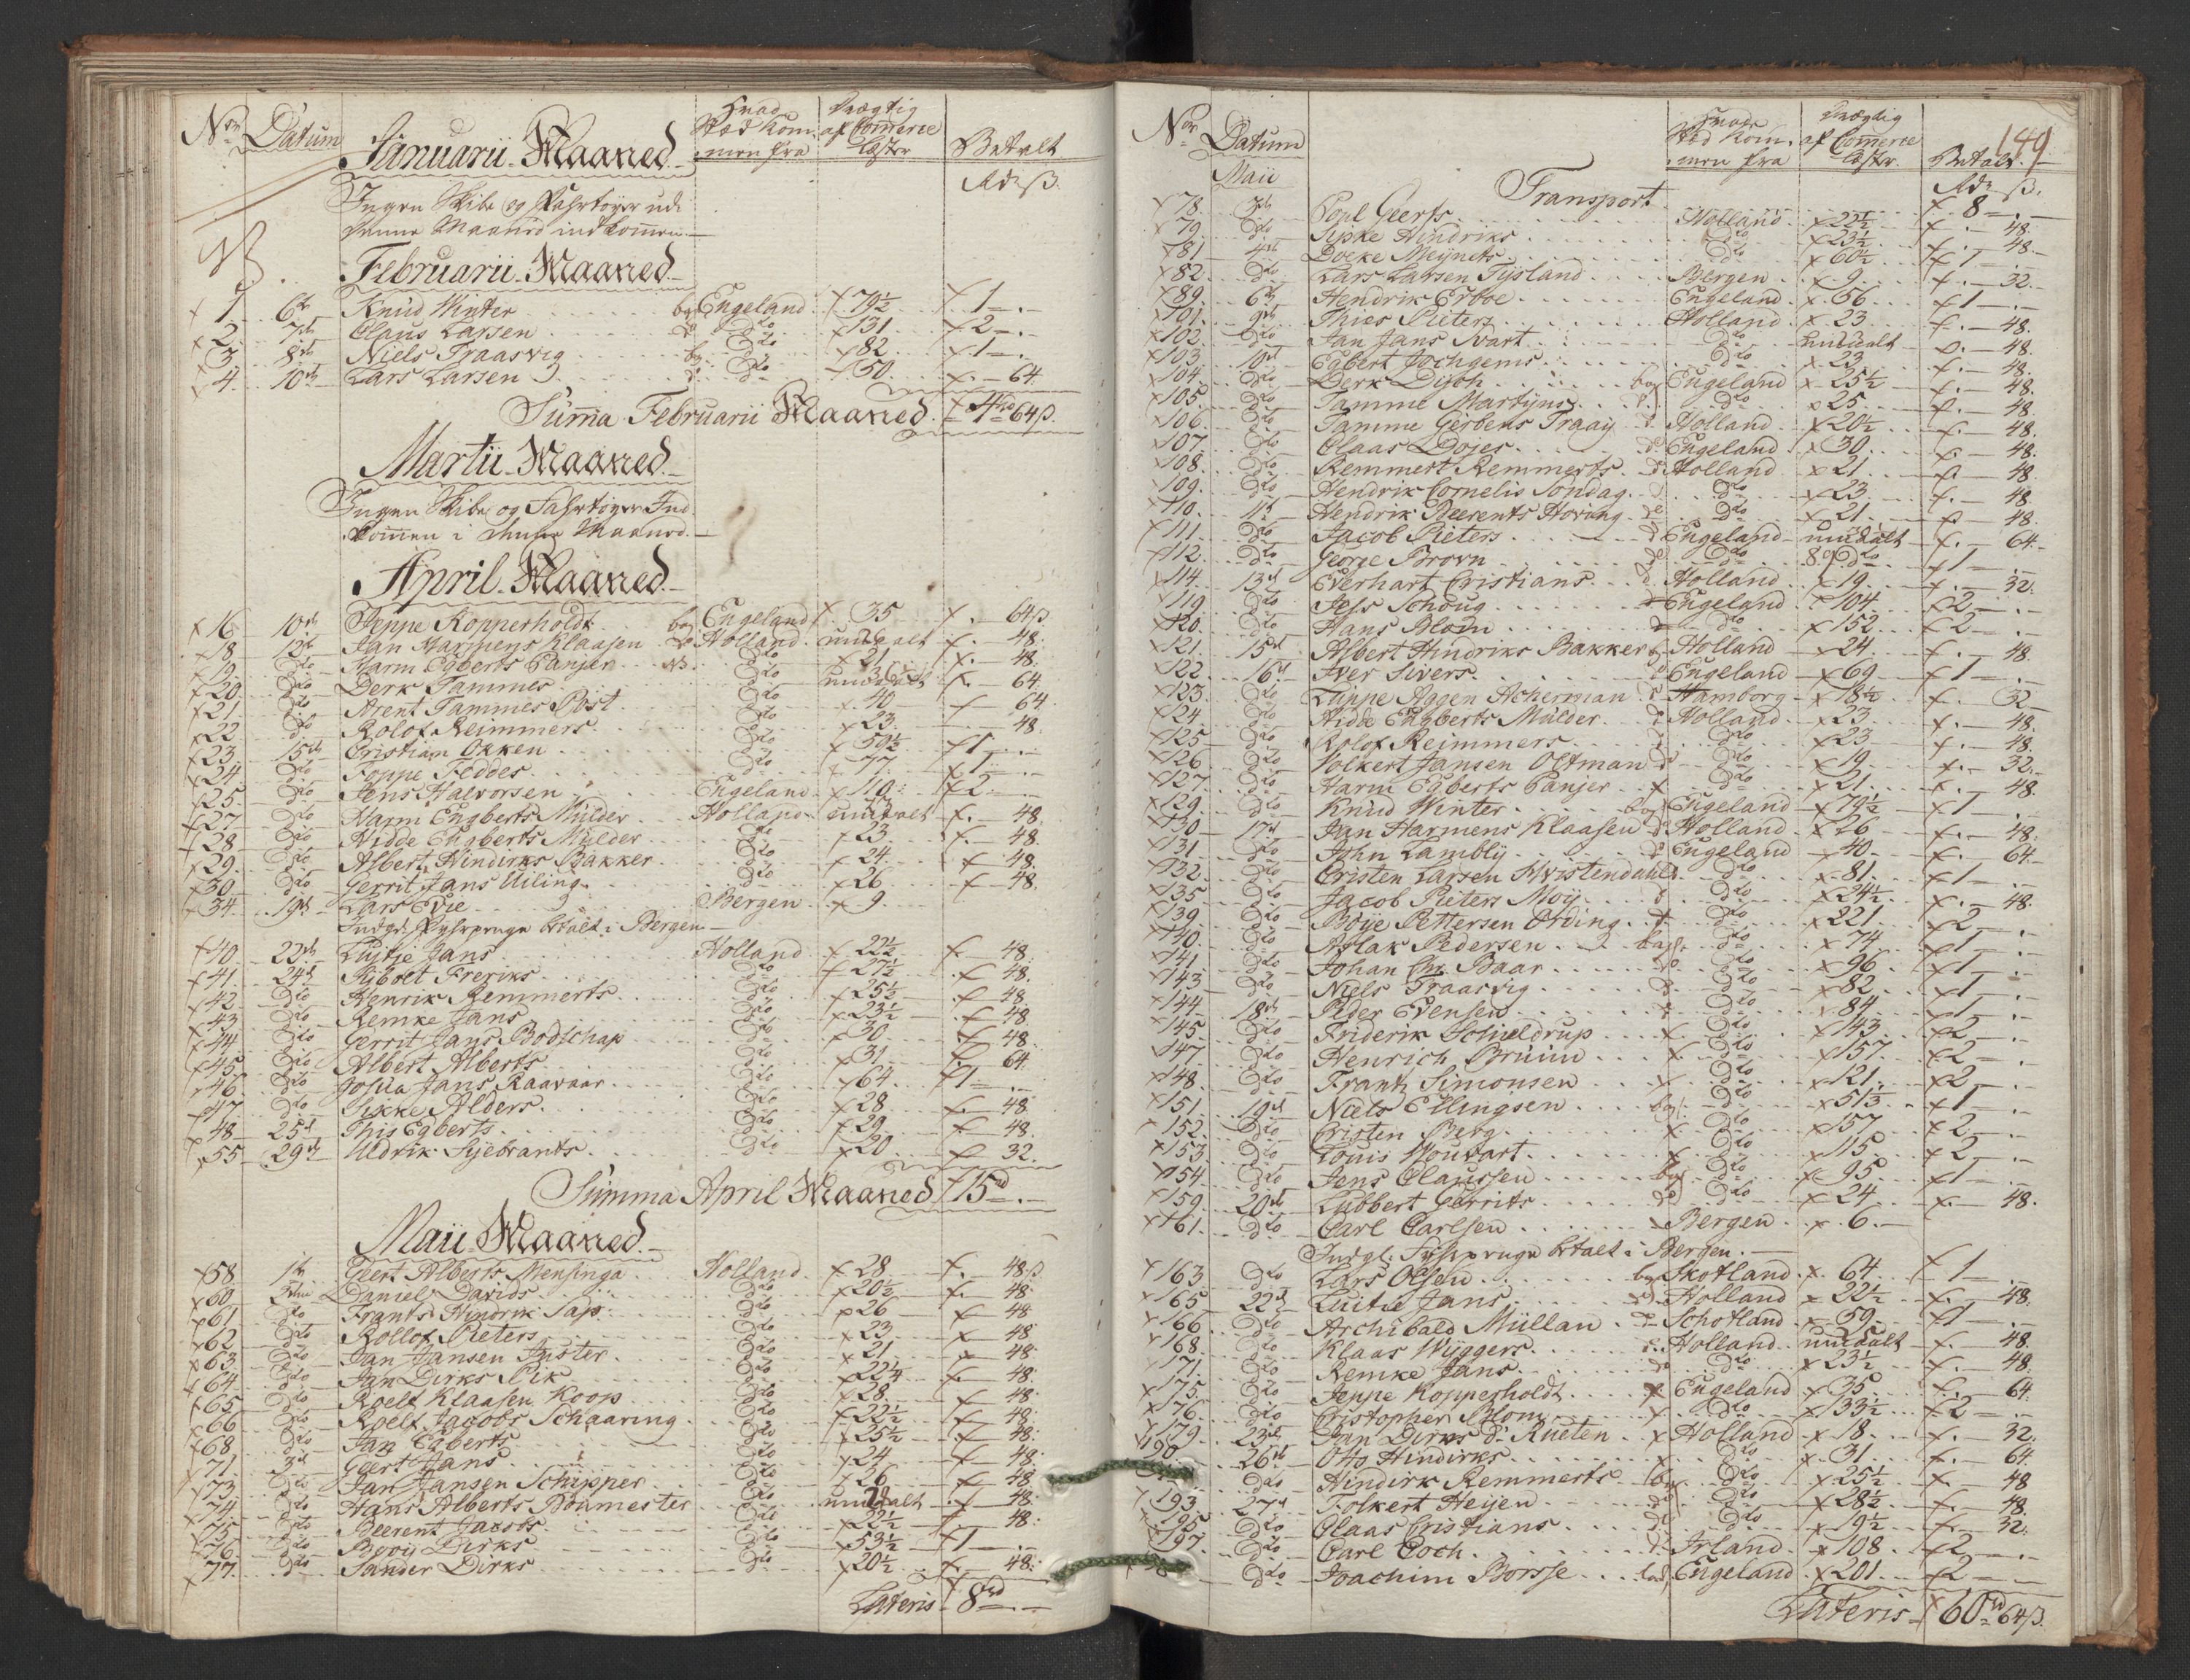 No. Datum Januarii Maaned hvad Stæd kommen fra Drægtig af Commerce Læster Betalt
Rd ß
Ingen Skibe og Fahrtøyer udi
denne Maaned indkommen
NB
Februarii Maaned
1 6te Knud Winter bag Engeland 79½ 1 -
2 7de Claus Larsen do Do 131 2 -
3 8de Niels Traasvig bg Do 82 1 -
4 10de Lars Larsen do Do 50 - 64
Summa Februarii Maaned 4rd 64ß
Martii Maaned
Ingen Skibe og Fahrtøyer Ind
kommen i denne Maaned
April Maaned
16 10de Jeppe Kopperholdt bag Engeland 35 - 64ß
18 12te Jan Harmens Klaasen do Holland - 48
19 Do Harm Egberts Panjer Do 21 - 48
20 Do Derk Tammes Do - 64
21 Do Arent Tammes Post Do 40 - 64
22 Do Rolof Reimmers Do 23 - 48
23 15de Cristian Okken Do 59½ 1 -
24 Do Foppe Feddes Do 77 1 -
25 Do Jens Halvorsen Engeland 110 2 -
27 Do Harm Engberts Mulder Holland - 48
28 Do Hidde Engberts Mulder Do 23 - 48
29 Do Albert Hindriks Bakker Do 24 - 48
30 Do Gerrit Jans Uiling Do 26 - 48
34 19de Lars Evie Bergen 9
Indgl. Fyhrpenge betalt i Bergen
40 23de Luitje Jans Holland 22½ - 48
41 24de Sijbolt Freriks Do 27½ - 48
42 Do Henrik Remmerts Do 25½ - 48
43 Do Remke Jans Do 23½ - 48
44 Do Gerrit Jans Bodschap Do 30 - 48
45 Do Albert Alberts Do 31 - 64
46 Do Josua Jans Raavaar Do 64 1 -
47 Do Sikke Alders Do 28 - 48
48 25de This Egberts Do 29 - 48
55 29de Uldrik Sijebrants Do 20 - 32
Summa April Maaned 15rd -
Maii Maaned
58 1te Geert Alberts Mensinga Holland 28 - 48ß
60 Daniel Davids Do 20½ - 48
61 Do Frants Hindrik Saps Do 26 - 48
62 Do Rollof Pieters Do 23 - 48
63 Do Jan Jansen Juister Do 21 - 48
64 Do Jan Dirks Pik Do 22¼ - 48
65 Do Roelf Klaasen Koop Do 28 - 48
66 Do Roelf Jacobs Schaaring Do 22½ - 48
68 Do Jan Egberts Do 25½ - 48
71 3de Geert Jans Do 24 - 48
73 Do Jan Jansen Schipper Do 26 - 48
74 Do Hans Alberts Boumester Do - 48
75 Do Beerent Jacobs Do 22½ - 48
76 Do Booy Dirks Do 53½ 1 -
77 Do Sander Dirks Do 20½ - 48
Lateris 8rd -
149
No. Datum hvad Stæd kommen fra Drægtig af Commerce Læster Betalt
Maii Rd ß
Transport 8 -
78 3de Popl Geerts Holland 22½ - 48
79 Do Sipke Hindriks Do 23½ - 48
81 4de Doeke Meijnets Do 60½ 1 -
82 Do Lars Larsen Tijsland Bergen 9 - 32
89 6te Hendrik Erboe Engeland 56 1 -
101 9de Thies Pieters Holland 23 - 48
102 Do Jan Jans Svart Do - 48
103 10de Egbert Jochgems Do 23 - 48
104 Do Derk Disch bag Engeland 25½ - 48
105 Do Tamme Martijns do Do 25 - 48
106 Do Tamme Gerbens Traaij d Holland 20½ - 48
107 Do Claas Dojes do Engeland 30 - 48
108 Do Remmert Remmerts do Holland 21 - 48
109 Do Hendrik Cornelis Sondag d Do 23 - 48
110 11te Hendrik Beerents Hoving do Do 21 - 48
111 Do Jacob Pieters d Engeland - 64
112 Do George Brovn do Do 1 -
114 13de Everhart Cristians d Holland 19 - 32
119 Do Jess Schoug Engeland 104 2 -
120 Do Hans Blom Do 152 2 -
121 15de Albert Hindriks Bakker Holland 24 - 48
122 16de Iver Sivers Engeland 69 1 -
123 Do Luppe Aggen Acherman Hamborg 18½ - 32
124 Do Hidde Engberts Mulder Holland 23 - 48
125 Do Rolof Reimmers Do 23 - 48
126 Do Volkert Jansen Oltman Do 19 - 32
127 Do Harm Egberts Panjer Do 21 - 48
129 Do Knud Winter bag Engeland 79½ 1 -
130 17de Jan Harmens Klaasen Holland 26 - 48
131 Do John Lamblij Engeland 40 - 64
132 Do Cristen Larsen Hvistendahl Do 81 1 -
135 Do Jacob Pieters Moij Do 24½ - 48
139 Do Boije Pettersen Ording Do 221 2 -
140 Do Aslak Pedersen bag Do 74 1 -
141 Do Johan Chr. Baar do Do 96 1 -
143 Do Niels Traasvig Do 82 1 -
144 18de Peder Evensen Do 84 1 -
145 Do Friderik Schieldrup Do 143 2 -
147 Do Henrich Bruun Do 157 2 -
148 Do Frantz Simonsen Do 121 2 -
151 19de Niels Ellingsen bag Do 51⅓ 1 -
152 Do Cristen Berg Do 157 2 -
153 Do Louis Do 115 2 -
154 Do Jens Claussen bag Do 95 1 -
159 20de Lubbert Gerrits do Do 24 - 48
161 Do Carl Carlsen Bergen 6
Indgl. Fyhrpenge betalt i Bergen
163 Do Lars Olsen bag Skotland 64 1 -
165 22de Luitie Jans do Holland 22½ - 48
166 Do Archibald Mullan do Schotland 59 1 -
168 Do Klaas Wiggers Holland - 48
171 Do Remke Jans do Do 23½ - 48
175 Do Jeppe Kopperholdt Engeland 35 - 64
176 Do Cristopher Blom Do 133½ 2 -
179 23de Jan Dirks D. Rueten Holland 18 - 32
190 26de Otto Hindirks Do 31 - 64
Do Hindirk Remmerts bag Do 25½ - 48
193 27de Folkert Heijen do Do 28½ - 48
195 Do Claas Cristians do Do 19½ - 32
197 Do Carl Coch Irland 108 2 -
Do Joachim Borsse bag Engeland 201 2 -
Lateris 60rd 64ß